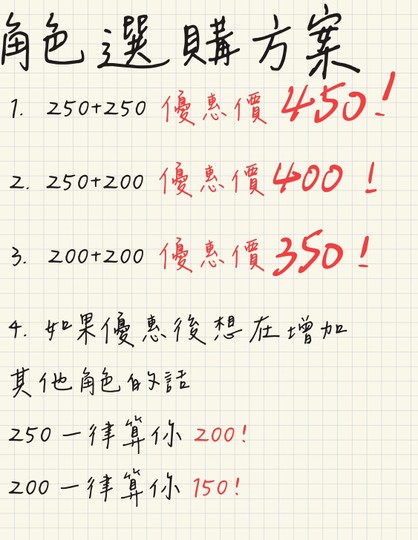 角色選購方案
1. 250+250 優惠價450!
2. 250+200 優惠價400!
3. 200+200 優惠價350!
4. 如果優惠後想在增加
其他角色的話
250 一律算你 200!
200 一律算你 150!